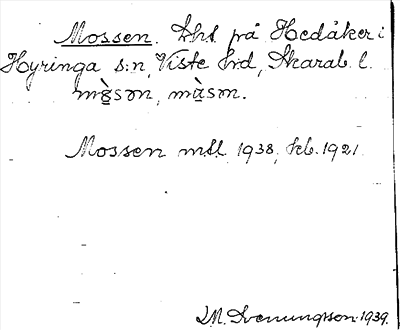 Mossen. lht på Hedåker i
Hyringa s:n, Viste hrd, Skarab. l.
mòsən, màsən.
Mossen mtl 1938, kb. 1921
M. Svenungsson 1939.